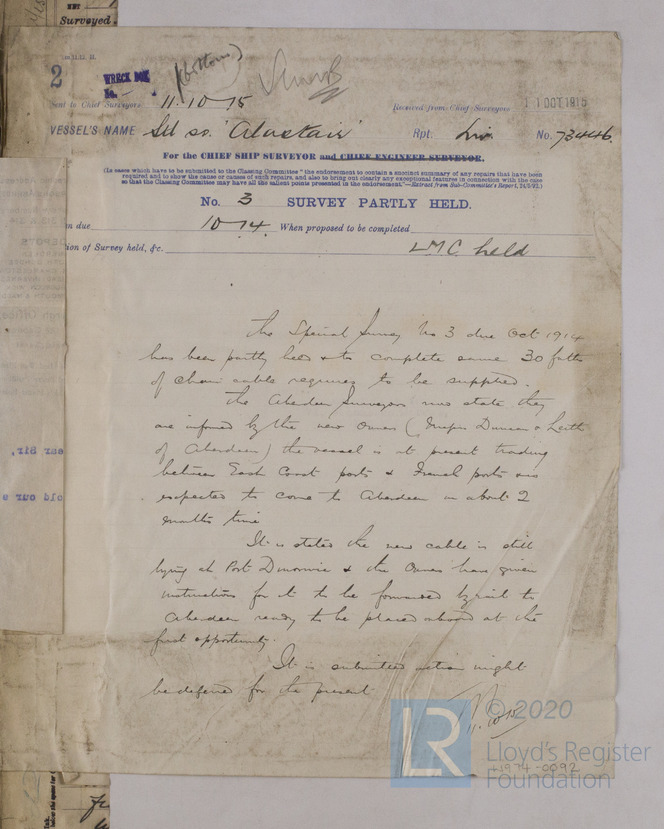 Surveyed
2
WRECK BOX
No.
(bottom)
Sent to Chief Surveyors 11.10.15 Received from Chief Surveyors 11 OCT 1915
VESSEL'S NAME SS "Alastair" Rpt. Liv. No. 73446
For the CHIEF SHIP SURVEYOR and CHIEF ENGINEER SURVEYOR.
(In cases which have to be submitted to the Classing Committee "the endorsement to contain a succinct summary of any repairs that have been
required and to show the cause or causes of such repairs, and also to bring out clearly any exceptional features in connection with the case
so that the Classing Committee may have all the salient points presented in the endorsement."—Extract from Sub-Committee's Report, 24/5/92.)
No. 3 SURVEY PARTLY HELD.
n due 10-14. When proposed to be completed
ion of Survey held, &c. LMC held
The Special Survey No 3 due Oct 1914
has been partly held & to complete same 30 faths
of chain cable requires to be supplied.
The Aberdeen Surveyors now state they
are informed by the new Owners (Messrs Duncan & Leith
of Aberdeen) the vessel is at present trading
between East Coast ports & French ports and
expected to come to Aberdeen in about 2
months time
It is stated the new cable is still
lying at Port Dinorwic & the Owners have given
instructions for it to be forwarded by rail to
Aberdeen ready to be placed aboard at the
first opportunity.
It is submitted action might
be deferred for the present
11.10.15
ear Sir,
old our s
© 2020
LR
Lloyd's Register
Foundation
1974-0092